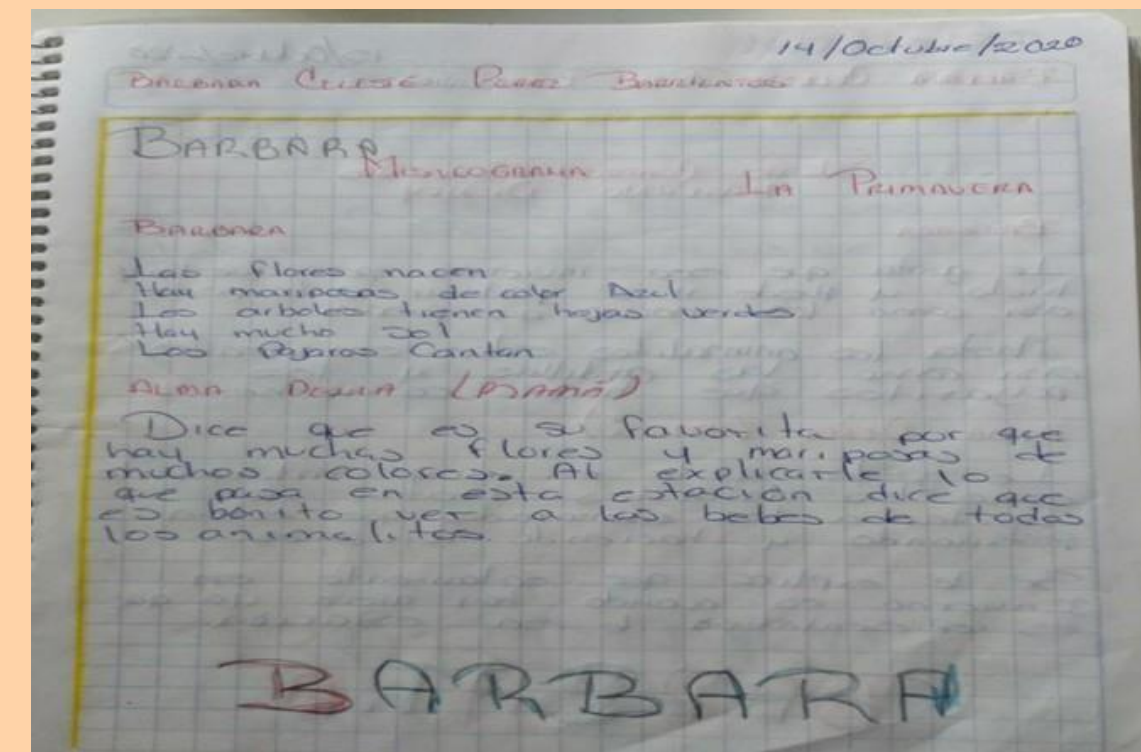 14/Octubre/2020
Barbara Perez
BARBARA
La Primavera
Barbara
Las flores nacen
Hay mariposas de color Azul
Los arboles tienen hojas verdes
Hay mucho sol
Los Pajaros Cantan
Alma (Mamá)
Dice que es su favorita por que
hay muchas flores y mariposas de
muchos colores. Al explicarle lo
que pasa en esta estación dice que
es bonito ver a los bebes de todos
los animalitos.
BARBARA